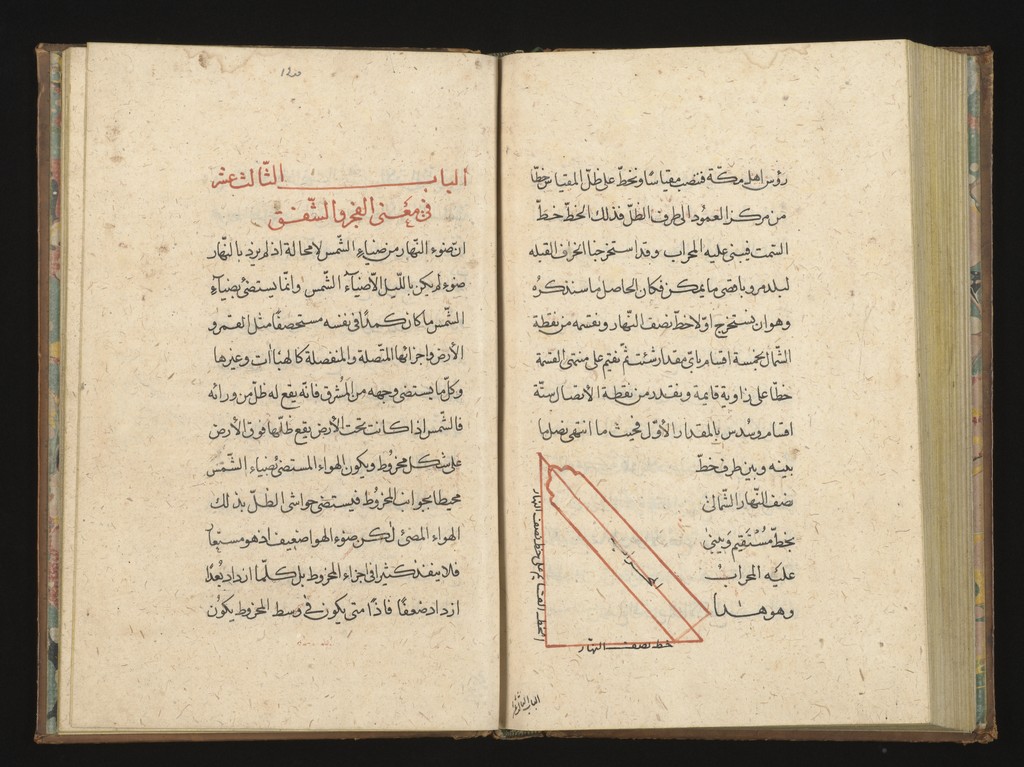 رؤس اهل مكّة فننصب مقياسًا ونخطّ على ظلّ المقياس خطّا
من مركز العمود الى طرف الظّلّ فذلك الخطّ خطّ
السّمت فيبنى عليه المحراب وقد استخرجنا انحراف القبله
لبلد مرو باقصى ما يمكن فكان الحاصل ما سنذكره
وهو ان نستخرج اوّلا خطّ نصف النّهار ونقسمه من نقطة
الشّمال بخمسة اقسام باىّ مقدار شئت ثمّ نقيم على منتهى القسمة
خطّا على زاوية قايمة ونقدر من نقطة الاتصال ستّة
اقسام وسُدس بالمقدار الاوّل فحيث ما انتهى نصل ما
بينه وبين طرف خطّ
نصف النّهار الشّمالىّ
بخطّ مُسْتَقِيم ويبنى
عليَه المحرابُ
وهو هذا
المحراب
خط نصف النهّار
الباب الثالث عشر
١٢٥
الباب الثّالث عشر
فى معنى الفجر والشّفق
انّ ضوء النّهار من ضياء الشّمس لا محالة اذ لم يرد بالنّهار
ضوء لم يكن باللّيل الّا ضياء الشّمس وانّما يستضئ بضياء
الشّمس ما كان كمدًا فى نفسه مستحصفًا مثل القمر و
الأرض واجزائها المتّصلة والمنفصلة كالهبئات وغيرها
وكلّ ما يستضئ وجهه من المُشرق فانّه يقع له ظلّ من ورائه
فالشّمس اذا كانت تحت الأرض يقع ظلّها فوق الأرض
على شكل مخروط ويكون الهواء المستضئ بضياء الشّمس
محيطا بجوانب المخروُط فيستضئ حواشى الظلّ بذلك
الهواء المضئ لكن ضوء الهوا ضعيف اذ هو مستبعا
فلا ينفذ كثيرا فى اجزاء المخروط بل كلّما ازداد بُعدًا
ازداد ضعفًا فاذًا متى يكون فى وسط المخروط يكوُن